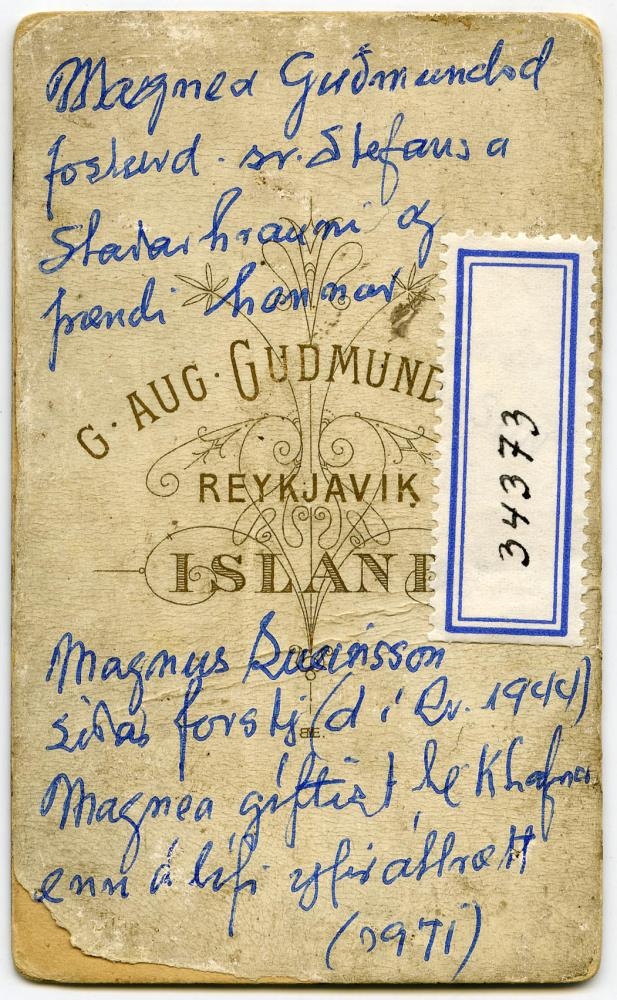 Magnea Guðmundsd
fósturd. sr. Stefáns a
Staðarhrauni og
frændi hannar
G. AUG. GUÐMUND
REYKJAVIK
ISLAND
34373
Magnus Runisson
síðar forstj (d í Rv. 1944)
BE.
Magnea giftist til Khafnar
enn á lífi yfir áttrætt
(1971)